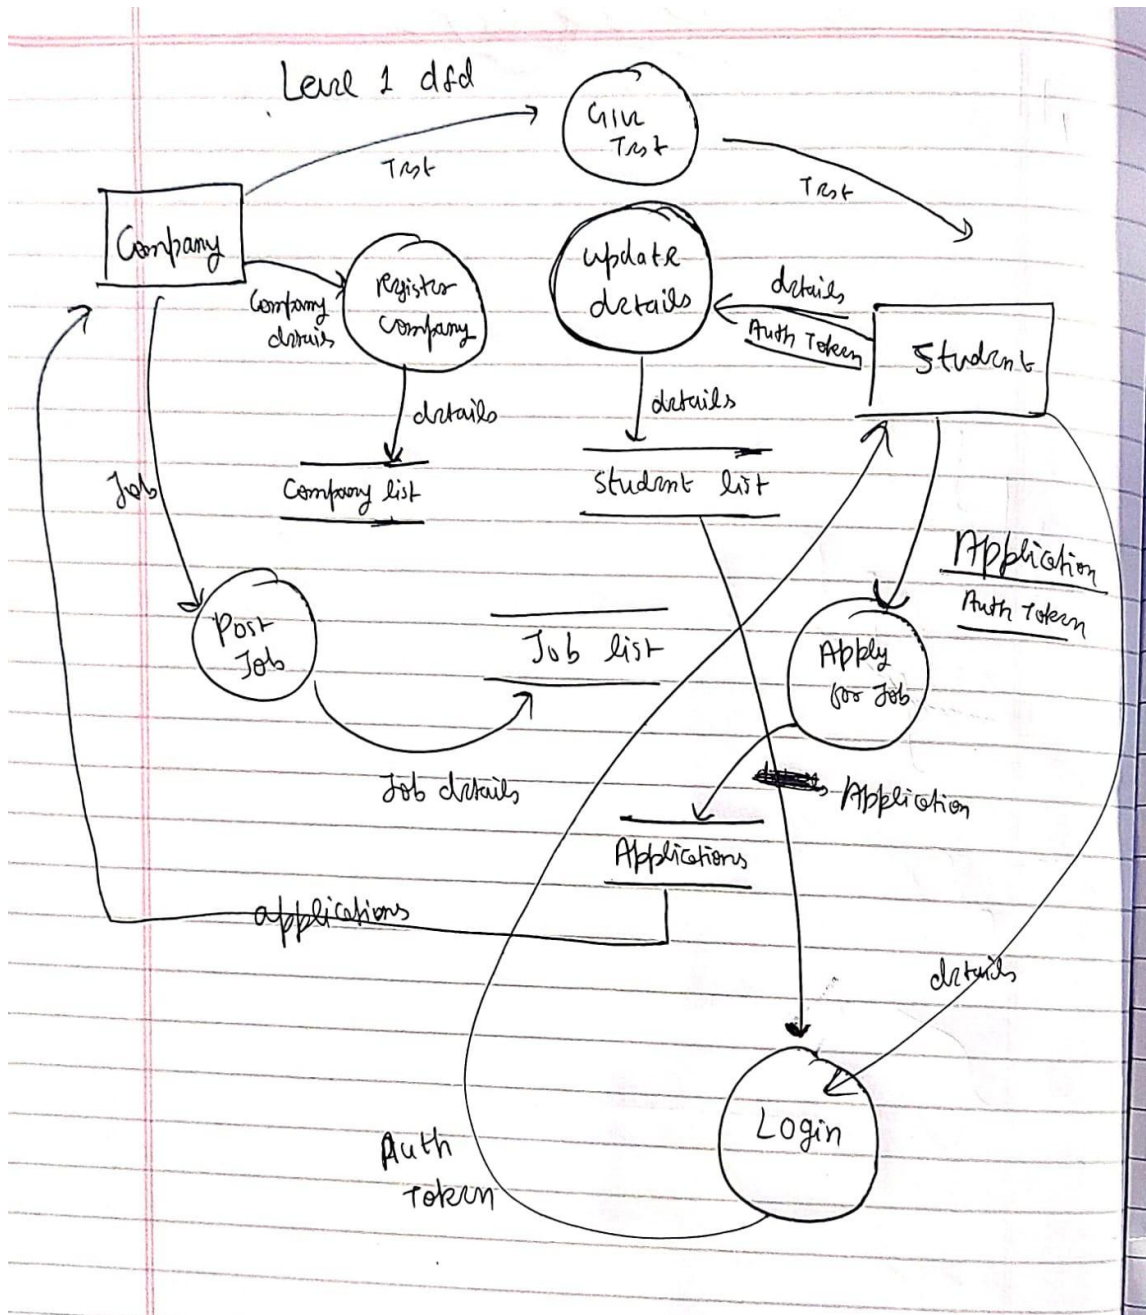 Level 1 dfd
Give
Test
Test
Test
Company
register
company
update
details
details
Auth Token
Student
Company
details
details
details
Job
Company list
Student list
Application
Auth Token
Post
Job
Job list
Apply
for Job
Job details
Application
Applications
applications
details
Login
Auth
Token